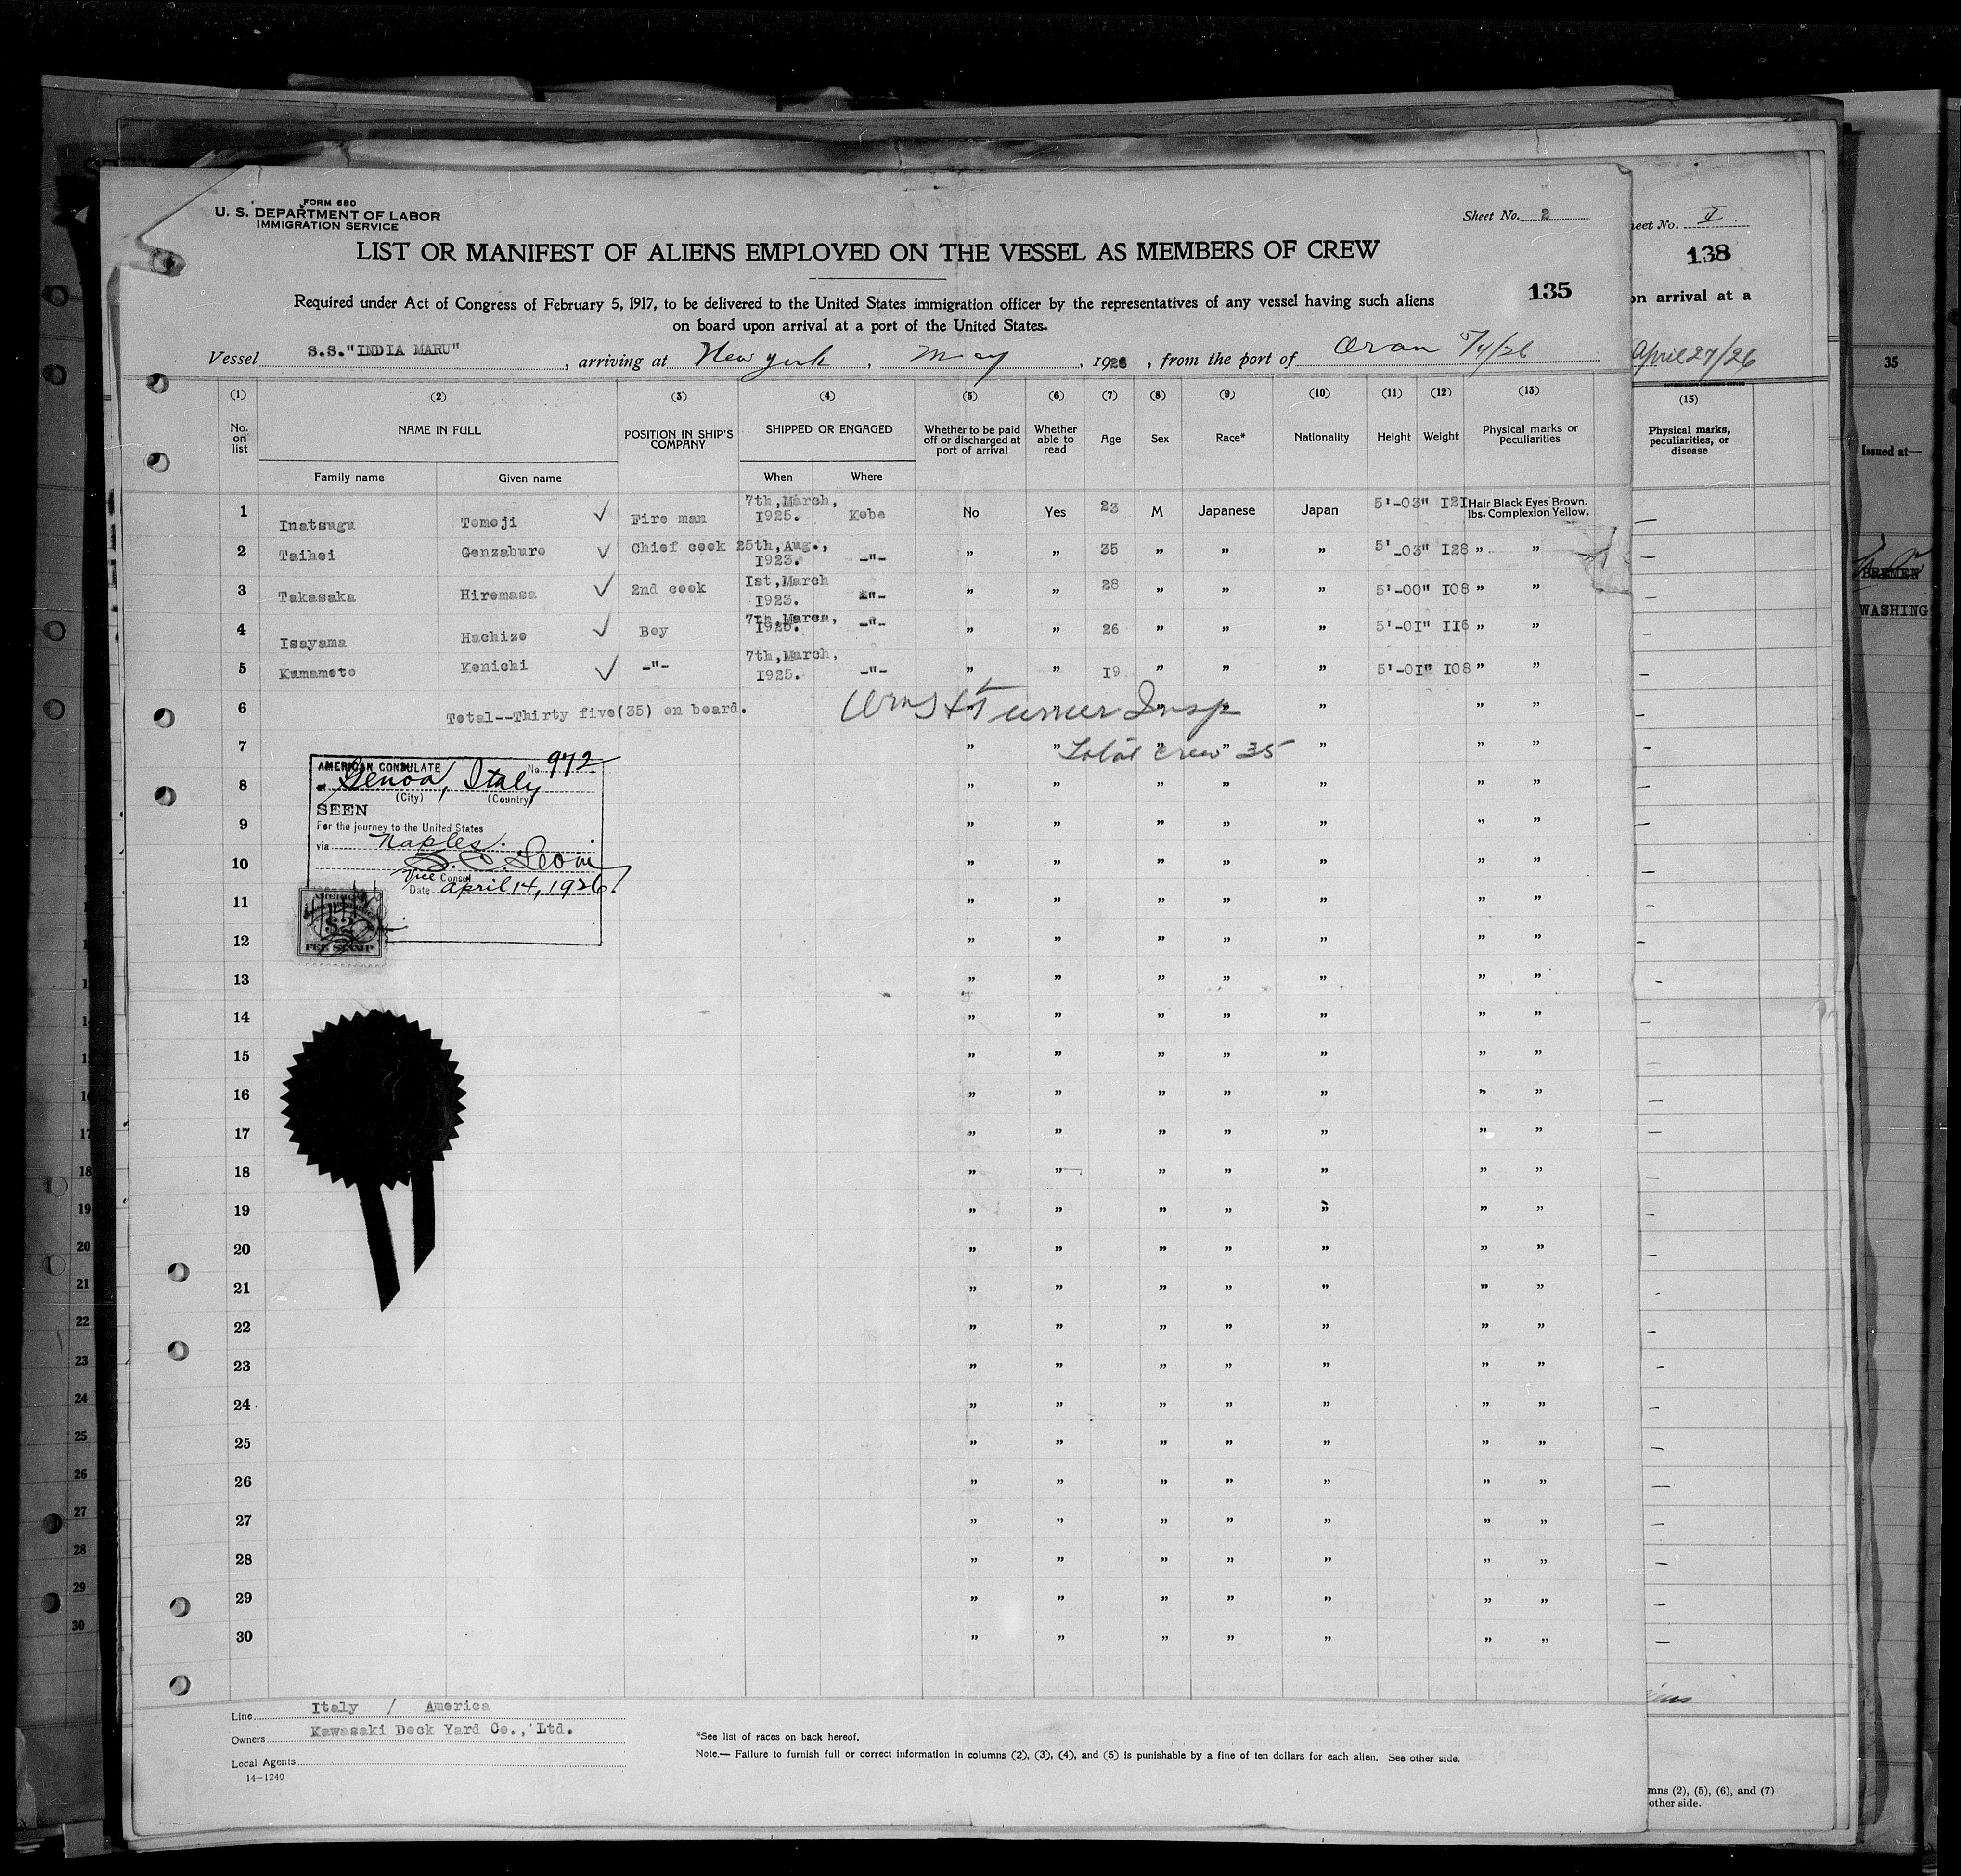 FORM 680
U. S. DEPARTMENT OF LABOR
IMMIGRATION SERVICE
Sheet No. 2
LIST OR MANIFEST OF ALIENS EMPLOYED ON THE VESSEL AS MEMBERS OF CREW
135
Required under Act of Congress of February 5, 1917, to be delivered to the United States immigration officer by the representatives of any vessel having such aliens
on board upon arrival at a port of the United States.
Vessel S.S."INDIA MARU", arriving at New york, May, 1926, from the port of Oran 5/4/26
(1) (2) (3) (4) (5) (6) (7) (8) (9) (10) (11) (12) (13)
No. on list NAME IN FULL POSITION IN SHIP'S COMPANY SHIPPED OR ENGAGED Whether to be paid off or discharged at port of arrival Whether able to read Age Sex Race* Nationality Height Weight Physical marks or Peculiarities
Family name Given name When Where
1 Inatsugu Tomoji ✓ Fire man 7th,March, 1925. Kobe No Yes 23 M Japanese Japan 5'-03" I2I lbs. Hair Black Eyes Brown. Complexion Yellow.
2 Taihei Genzaburo ✓ Chief cook 25th,Aug., I923. -"- " " 35 " " " 5'-03" I28 " "
3 Takasaka Hiromasa ✓ 2nd cook Ist,March I923. -"- " " 28 " " " 5'-00" I08 " "
4 Isayama Hachizo ✓ Boy 7th,March, I925. -"- " " 26 " " " 5'-0I" II6 " "
5 Kumamoto Kenichi ✓ -"- 7th,March, I925. -"- " " I9 " " " 5'-0I" I08 " "
6 Total--Thirty five(35) on board. Turner Insp " " " " " " "
7 Total crew 35 " " " " " " "
8 " " " " " " "
9 " " " " " " "
10 " " " " " " "
11 " " " " " " "
12 " " " " " " "
13 " " " " " " "
14 " " " " " " "
15 " " " " " " "
16 " " " " " " "
17 " " " " " " "
18 " " " " " " "
19 " " " " " " "
20 " " " " " " "
21 " " " " " " "
22 " " " " " " "
23 " " " " " " "
24 " " " " " " "
25 " " " " " " "
26 " " " " " " "
27 " " " " " " "
28 " " " " " " "
29 " " " " " " "
30 " " " " " " "
AMERICAN CONSULATE No. 972
at Genoa, Italy
(City) (Country)
SEEN
For the journey to the United States
via Naples.
Vice Consul
Date April 14, 1926.
AMERICAN
$2
FEE STAMP
Line Italy / America
Owners Kawasaki Dock Yard Co.,'Ltd.
Local Agents
14—1240
*See list of races on back hereof.
Note.— Failure to furnish full or correct information in columns (2), (3), (4), and (5) is punishable by a fine of ten dollars for each alien. See other side.
heet No. I
138
on arrival at a
April 27/26
(15)
Physical marks, peculiarities, or disease
mns (2), (5), (6), and (7)
other side.
35
Issued at—
BREMEN
WASHING
18
19
20
21
22
23
24
25
26
27
28
29
30